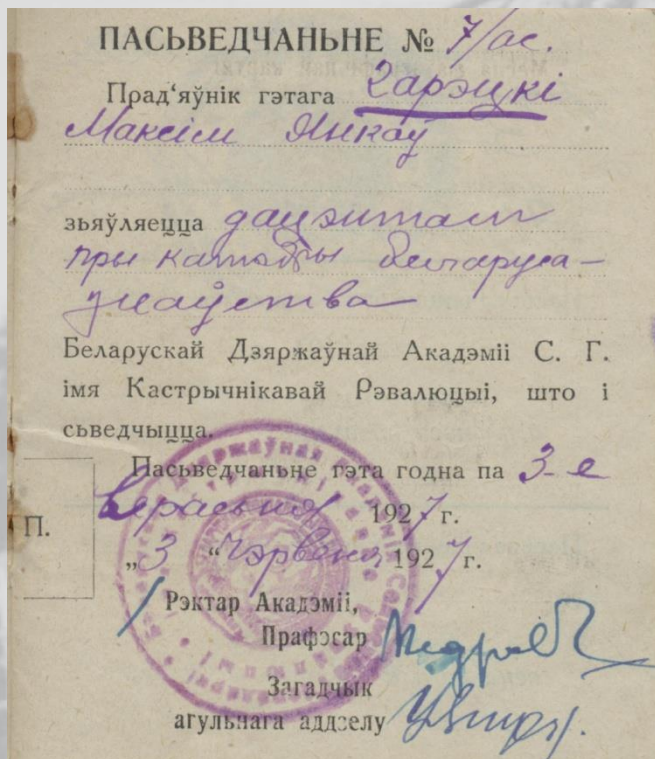 ПАСЬВЕДЧАНЬНЕ № 7/ас.
Прад'яўнік гэтага Гарэцкі
Максім Янкаў
зьяўляецца дацэнтам
пры катэдры беларуса-
знаўства
Беларускай Дзяржаўнай Акадэміі С. Г.
імя Кастрычнікавай Рэвалюцыі, што і
сьведчыцца.
Пасьведчаньне гэта годна па 3-е
верасьня 1927 г.
П.
„3“ чэрвеня 1927 г.
Рэктар Акадэміі,
Прафэсар
Загадчык
агульнага аддзелу